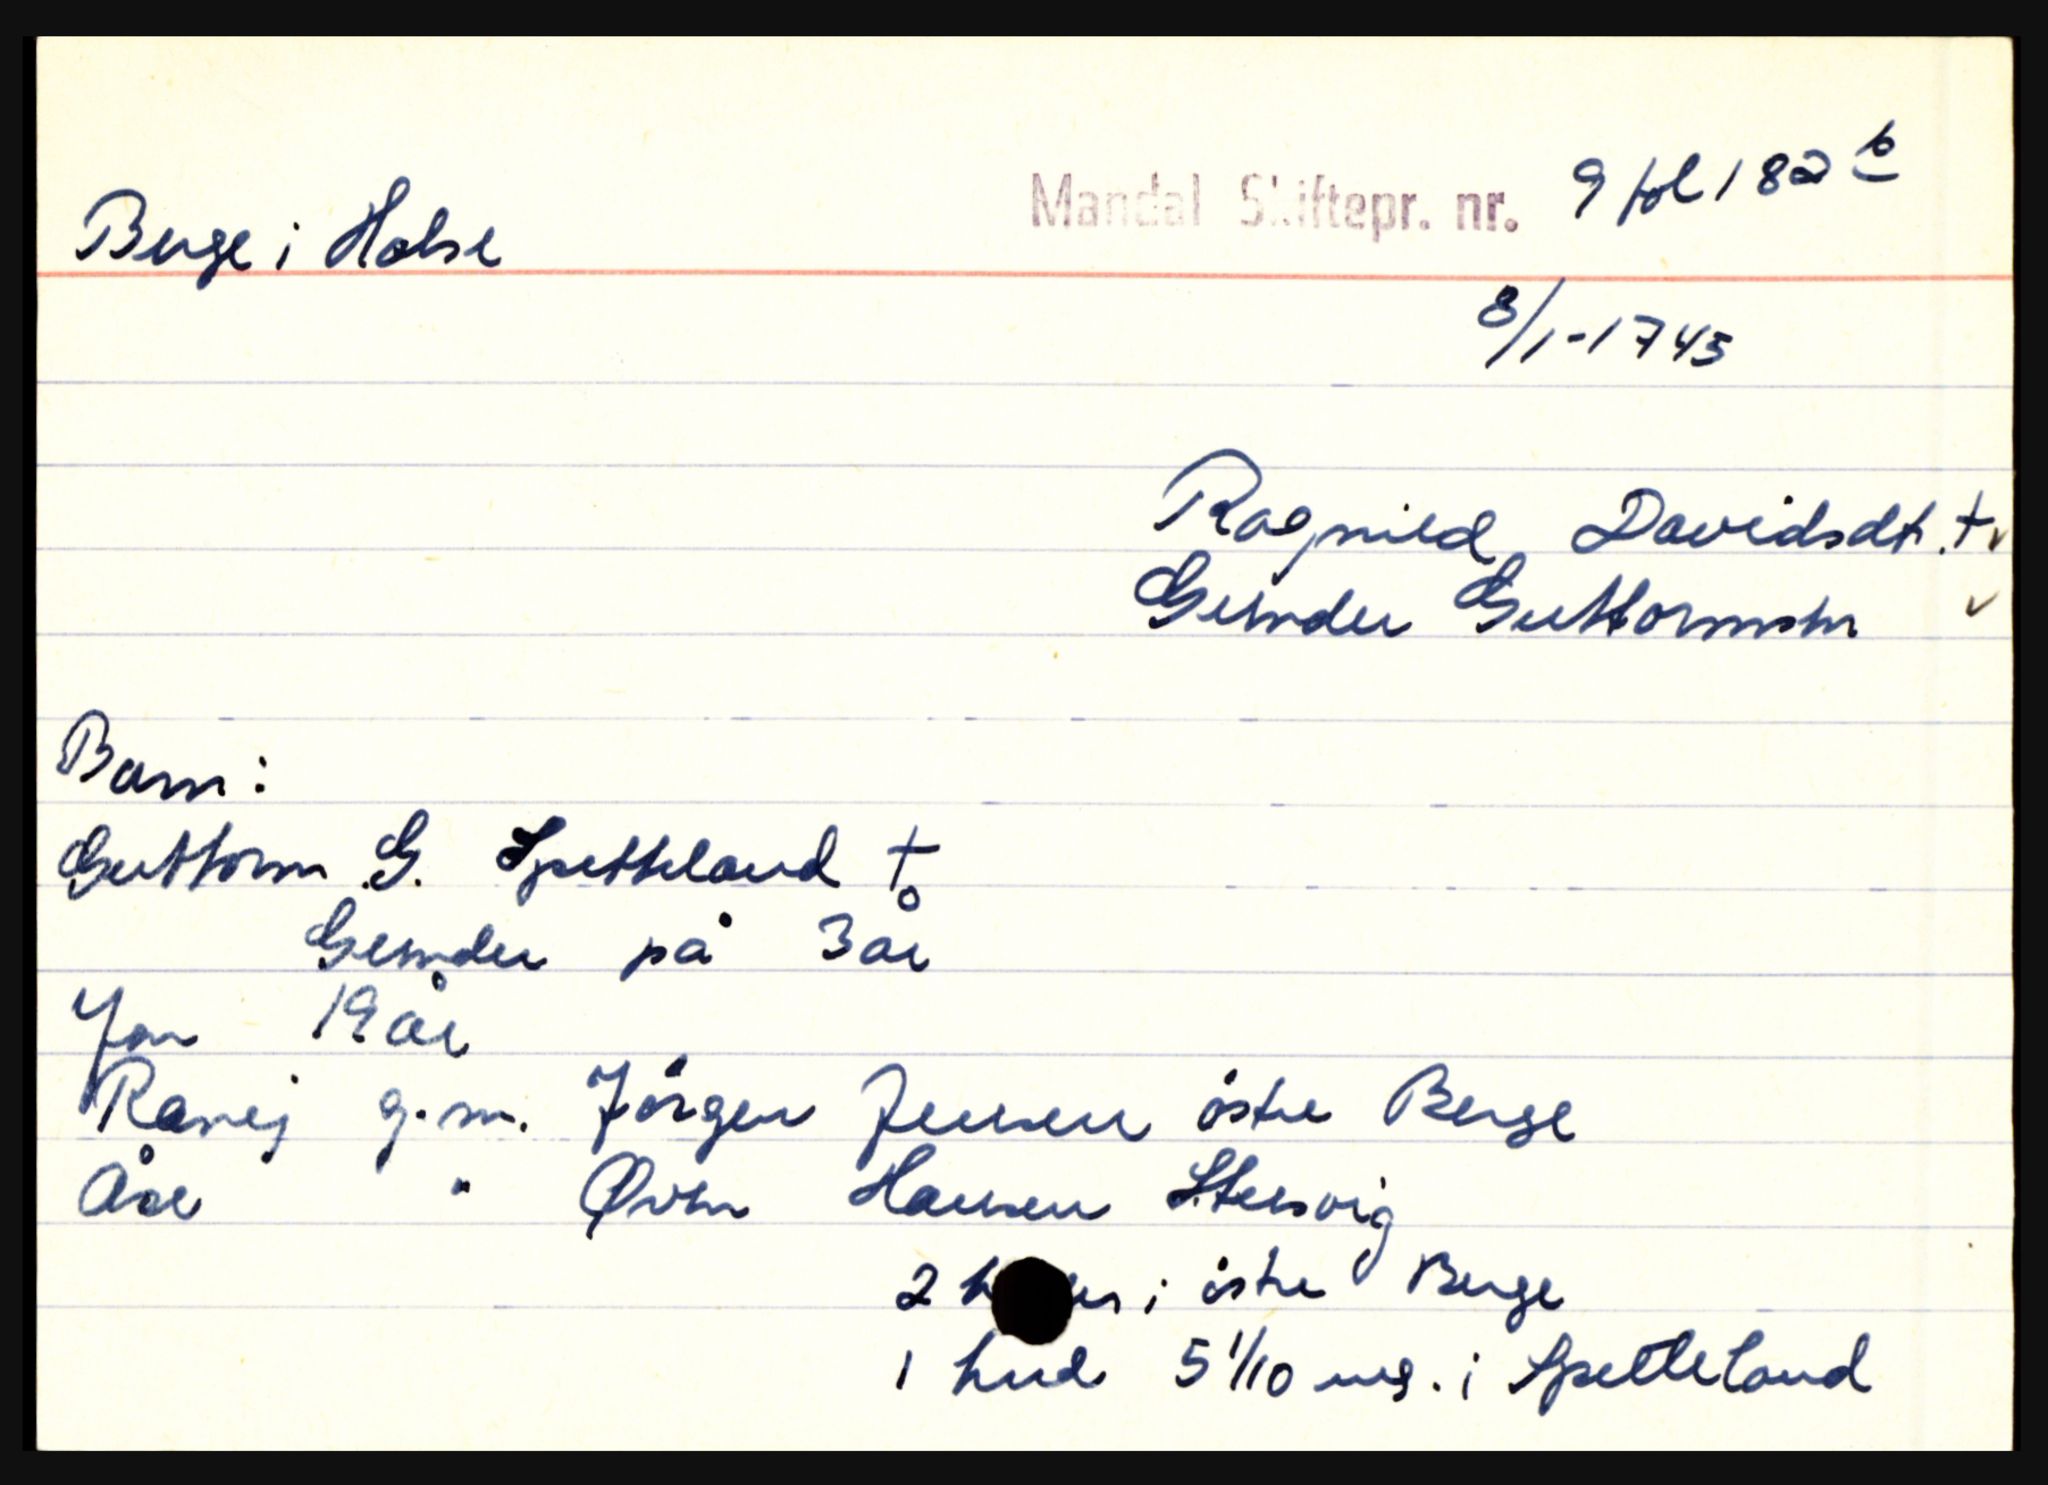 Berge i Halse
Mandal Skiftepr. nr. 9 fol 182 b
8/1-1745
Ragnild Davidsdt. †v
Gunder Guttormsn v
Barn:
Guttorm G. Spetteland †
Gunder på 3 år
Jon 19 år
Ranej g.m. Jörgen Jensen östre Berge
Åse " Øven Hansen
2 huder i östre Berge
1 hud 5 1/10 mg. i Spetteland